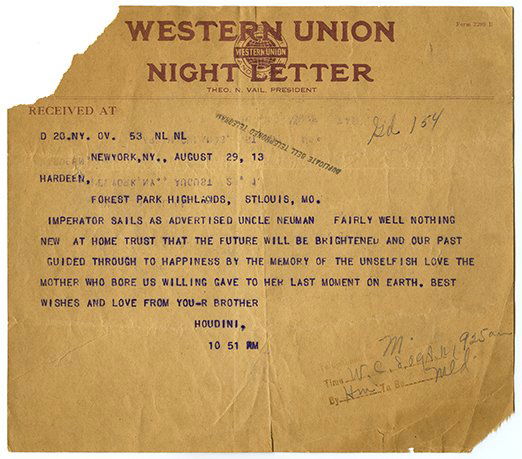 Form 2289 B
WESTERN UNION
WESTERN UNION
NIGHT LETTER
THEO. N. VAIL, PRESIDENT
RECEIVED AT
D 20.NY. OV. 53 NL NL
Gd 154
DUPLICATE BELL TELEPHONED TELEGRAM
NEWYORK,NY., AUGUST 29, 13
HARDEEN,
FOREST PARK HIGHLACIDS, STLOUIS, MO.
IMPERATOR SAILS AS ADVERTISED UNCLE NEUMAN FAIRLY WELL NOTHING
NEW AT HOME TRUST THAT THE FUTURE WILL BE BRIGHTENED AND OUR PAST
GUIDED THROUGH TO HAPPINESS BY THE MEMORY OF THE UNSELFISH LOVE THE
MOTHER WHO BORE US WILLING GAVE TO HER LAST MOMENT ON EARTH. BEST
WISHES AND LOVE FROM YOU-R BROTHER
HOUDINI,
10 51 PM
M.
Time W. C. 925am
By Hm To Be Mld.